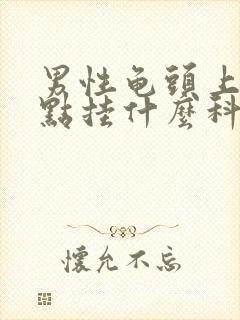 男性龟頭上
點挂什麼科
懷允不忘